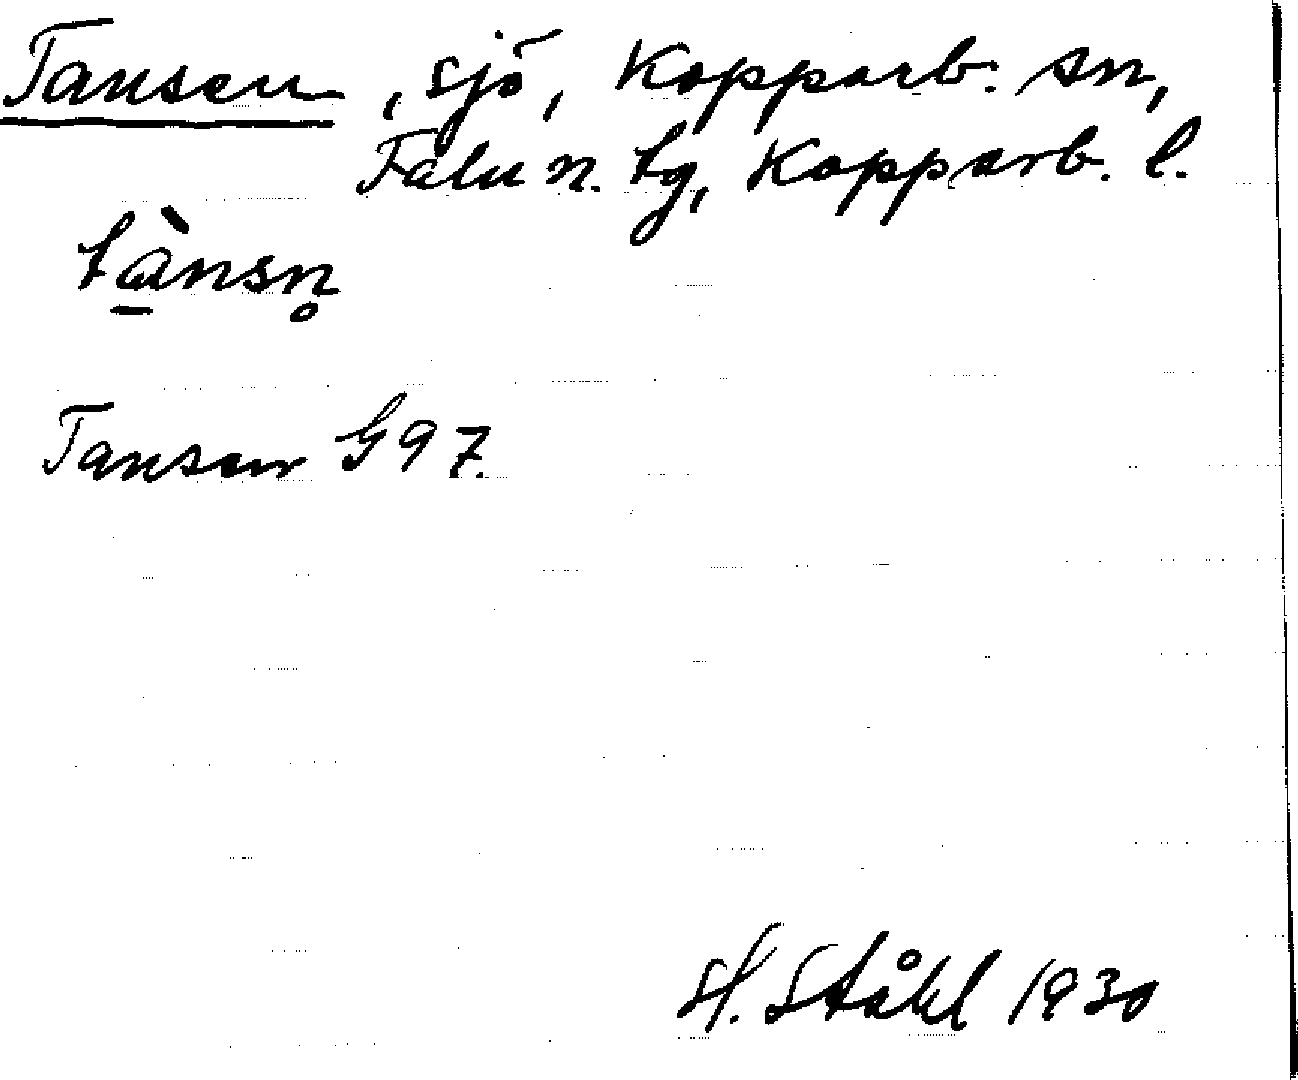 Tansen, sjö, Kopparb. sn,
Falu n. tg, Kopparb. l.
tа̱̀nsn̥
Tansen G97.
H. Ståhl 1930